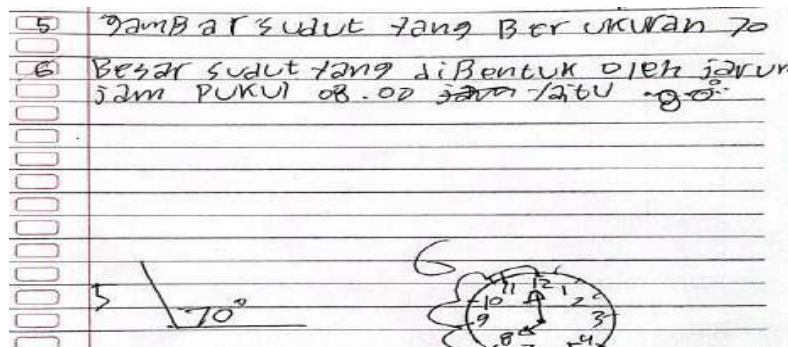 5 gamBar sudut yang Ber ukuran 70
6 Besar sudut yang diBentuk oleh jarum
jam PUKUl 08.00 yaitu
5 70°
6
11 12 1
10 2
9 3
8 4